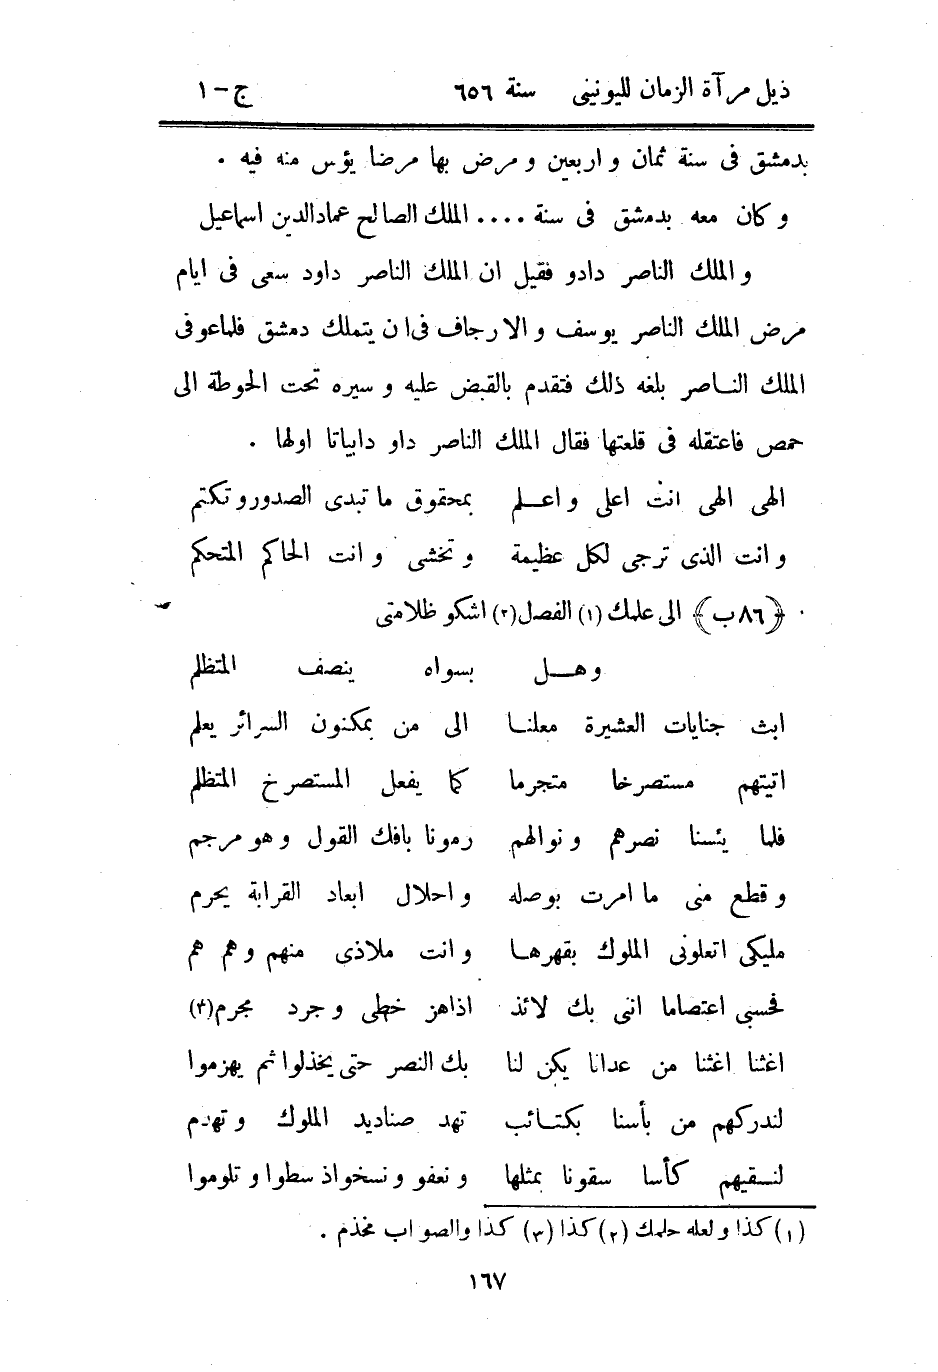 ذيل مرآة الزمان لليونينى سنة ٦٥٦ ج – ١
بدمشق فى سنة ثمان و اربعين و مرض بها مرضا يؤس منه فيه .
و كان معه بدمشق فى سنة .... الملك الصالح عمادالدين اسماعيل
و الملك الناصر دادو فقيل ان الملك الناصر داود سعى فى ايام
مرض الملك الناصر يوسف و الارجاف فى ان يتملك دمشق فلماعوفى
الملك النـاصر بلغه ذلك فتقدم بالقبض عليه و سيره تحت الحوطة الى
حمص فاعتقله فى قلعتها فقال الملك الناصر داو دابياتا اولها .
الهى الهى انت اعلى و اعـلم بمحقوق ما تبدى الصدور و تكتم
و انت الذى ترجى لكل عظيمة و تخشى و انت الحاكم المتحكم
﴿٨٦ب﴾ الى علمك (١) الفصل(٢) اشكو ظلامتى
وهـل بسواه ينصف المتظلم
ابث جنايات العشيرة معلنـا الى من بمكنون السرائر يعلم
اتيتهم مستصرخا متجرما كما يفعل المستصرخ المتظلم
فلما يئسنا نصرهم و نوالهم رمونا بافك القول و هو مرجم
و قطع منى ما امرت بوصله و احلال ابعاد القرابة يحرم
مليكى اتعلونى الملوك بقهرهـا و انت ملاذى منهم و هم هم
فحسبى اعتصاما انى بك لائذ اذاهز خطى و جرد مجرم(٣)
اغثنا اغثنا من عدانا يكن لنا بك النصر حتى يخذلوا ثم يهزموا
لندركهم من بأسنا بكتـائب تهد صناديد الملوك و تهدم
لنـسقيهم كأسا سقونا بمثلها و نعفو و نسخواذ سطوا و تلوموا
(١) كذا و لعله حلمك (٢) كذا (٣) كذا والصواب مخذم .
١٦٧